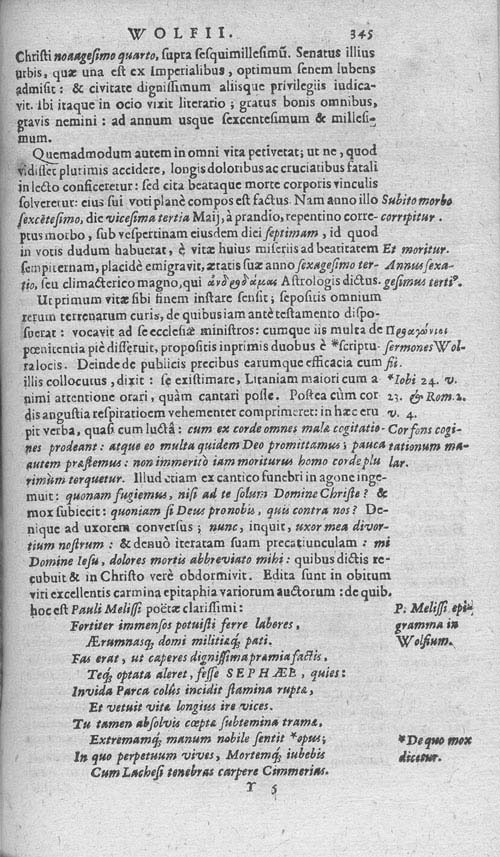 WOLFII. 345
Christi nonagesimo quarto, supra sesquimillesimũ. Senatus illius
urbis, quæ una est ex Imperialibus, optimum senem lubens
admisit: & civitate dignissimum aliisque privilegiis iudica-
vit. ibi itaque in ocio vixit literatio; gratus bonis omnibus,
gravis nemini: ad annum usque sexcentesimum & millesi-
mum.
Quemadmodum autem in omni vita petivetat; ut ne, quod
vidisset plurimis accidere, longis doloribus ac cruciatibus fatali
in lecto conficeretur: sed cita beataque morte corporis vinculis
solveretur: eius sui voti planè compos est factus. Nam anno illo
Subito morbo
sexcẽtesimo, die vicesima tertia Maij, à prandio, repentino corre-
corripitur.
ptus morbo, sub vespertinam eiusdem diei septimam, id quod
in votis dudum habuerat, è vitæ huius miseriis ad beatitatem
Et moritur.
sempiternam, placidè emigravit, ætatis suæ anno sexagesimo ter-
Annus sexa-
tio, seu climacterico magno, qui Astrologis dictus.
gesimus terti⁹.
Ut primum vitæ sibi finem instare sensit; sepositis omnium
rerum terrenatum curis, de quibus iam antè testamento dispo-
suerat: vocavit ad se ecclesiæ ministros: cumque iis multa de
pœnitentia piè disseruit, propositis inprimis duobus è *scriptu-
sermones Wol-
ra locis. Deinde de publicis precibus earumque efficacia cum
fii.
illis collocutus, dixit: se existimare, Litaniam maiori cum a
*Iobi 24. v.
nimi attentione orari, quàm cantari posse. Postea cùm cor
23. & Rom. 2.
dis angustia respiratioẽm vehementer comprimeret: in hæc eru
v. 4.
pit verba, quasi cum luctâ: cum ex corde omnes malæ cogitatio-
Cor fons cogi-
nes prodeant: atque eo multa quidem Deo promittamus; pauca
tationum ma-
autem præstemus: non immeritò iam moriturus homo corde plu
lar.
rimùm torquetur. Illud etiam ex cantico funebri in agone inge-
muit: quonam fugiemus, nisi ad te solum Domine Christe? &
mox subiecit: quoniam si Deus pro nobis, quis contra nos? De-
nique ad uxorem conversus; nunc, inquit, uxor mea divor-
tium nostrum: & denuò iteratam suam precatiunculam: mi
Domine Iesu, dolores mortis abbreviato mihi: quibus dictis re-
cubuit & in Christo verè obdormivit. Edita sunt in obitum
viri excellentis carmina epitaphia variorum auctorum: de quib.
hoc est Pauli Melissi poëtæ clarissimi:
P. Melissi epi-
Fortiter immensos potuisti ferre labores,
gramma in
Ærumnasq; domi militiæq; pati.
Wolfium.
Fas erat, ut caperes dignissima præmia factis,
Teq; optata aleret, fesse SEPHÆE, quies:
Invida Parca colûs incidit stamina rupta,
Et vetuit vitæ longius ire vices.
Tu tamen absolvis cœpta subtemina tramæ,
Extremamq; manum nobile sentit *opus;
*De quo mox
In quo perpetuum vives, Mortemq; iubebis
dicetur.
Cum Lachesi tenebras carpere Cimmerias.
Y 5